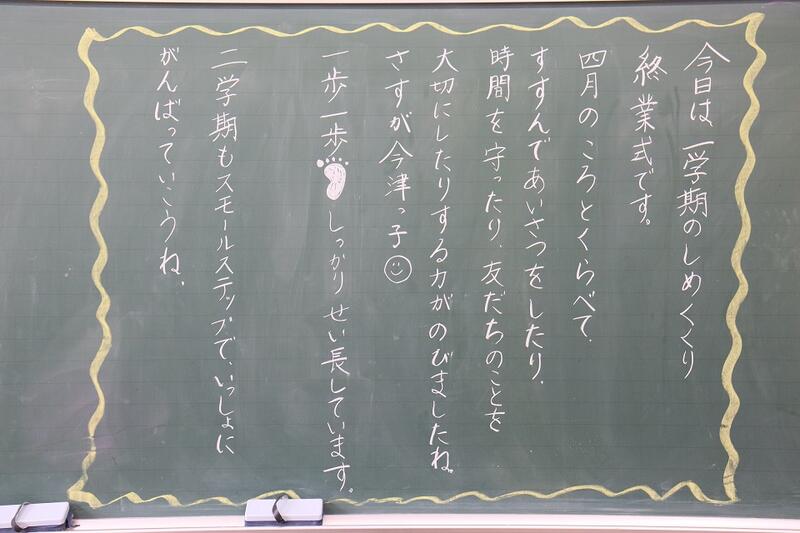 今日は、一学期のしめくくり
終業式です。
四月のころとくらべて、
すすんであいさつをしたり、
時間を守ったり、友だちのことを
大切にしたりする力がのびましたね。
さすが今津っ子
一歩一歩しっかりせい長しています。
二学期もスモールステップで、いっしょに
がんばっていこうね。